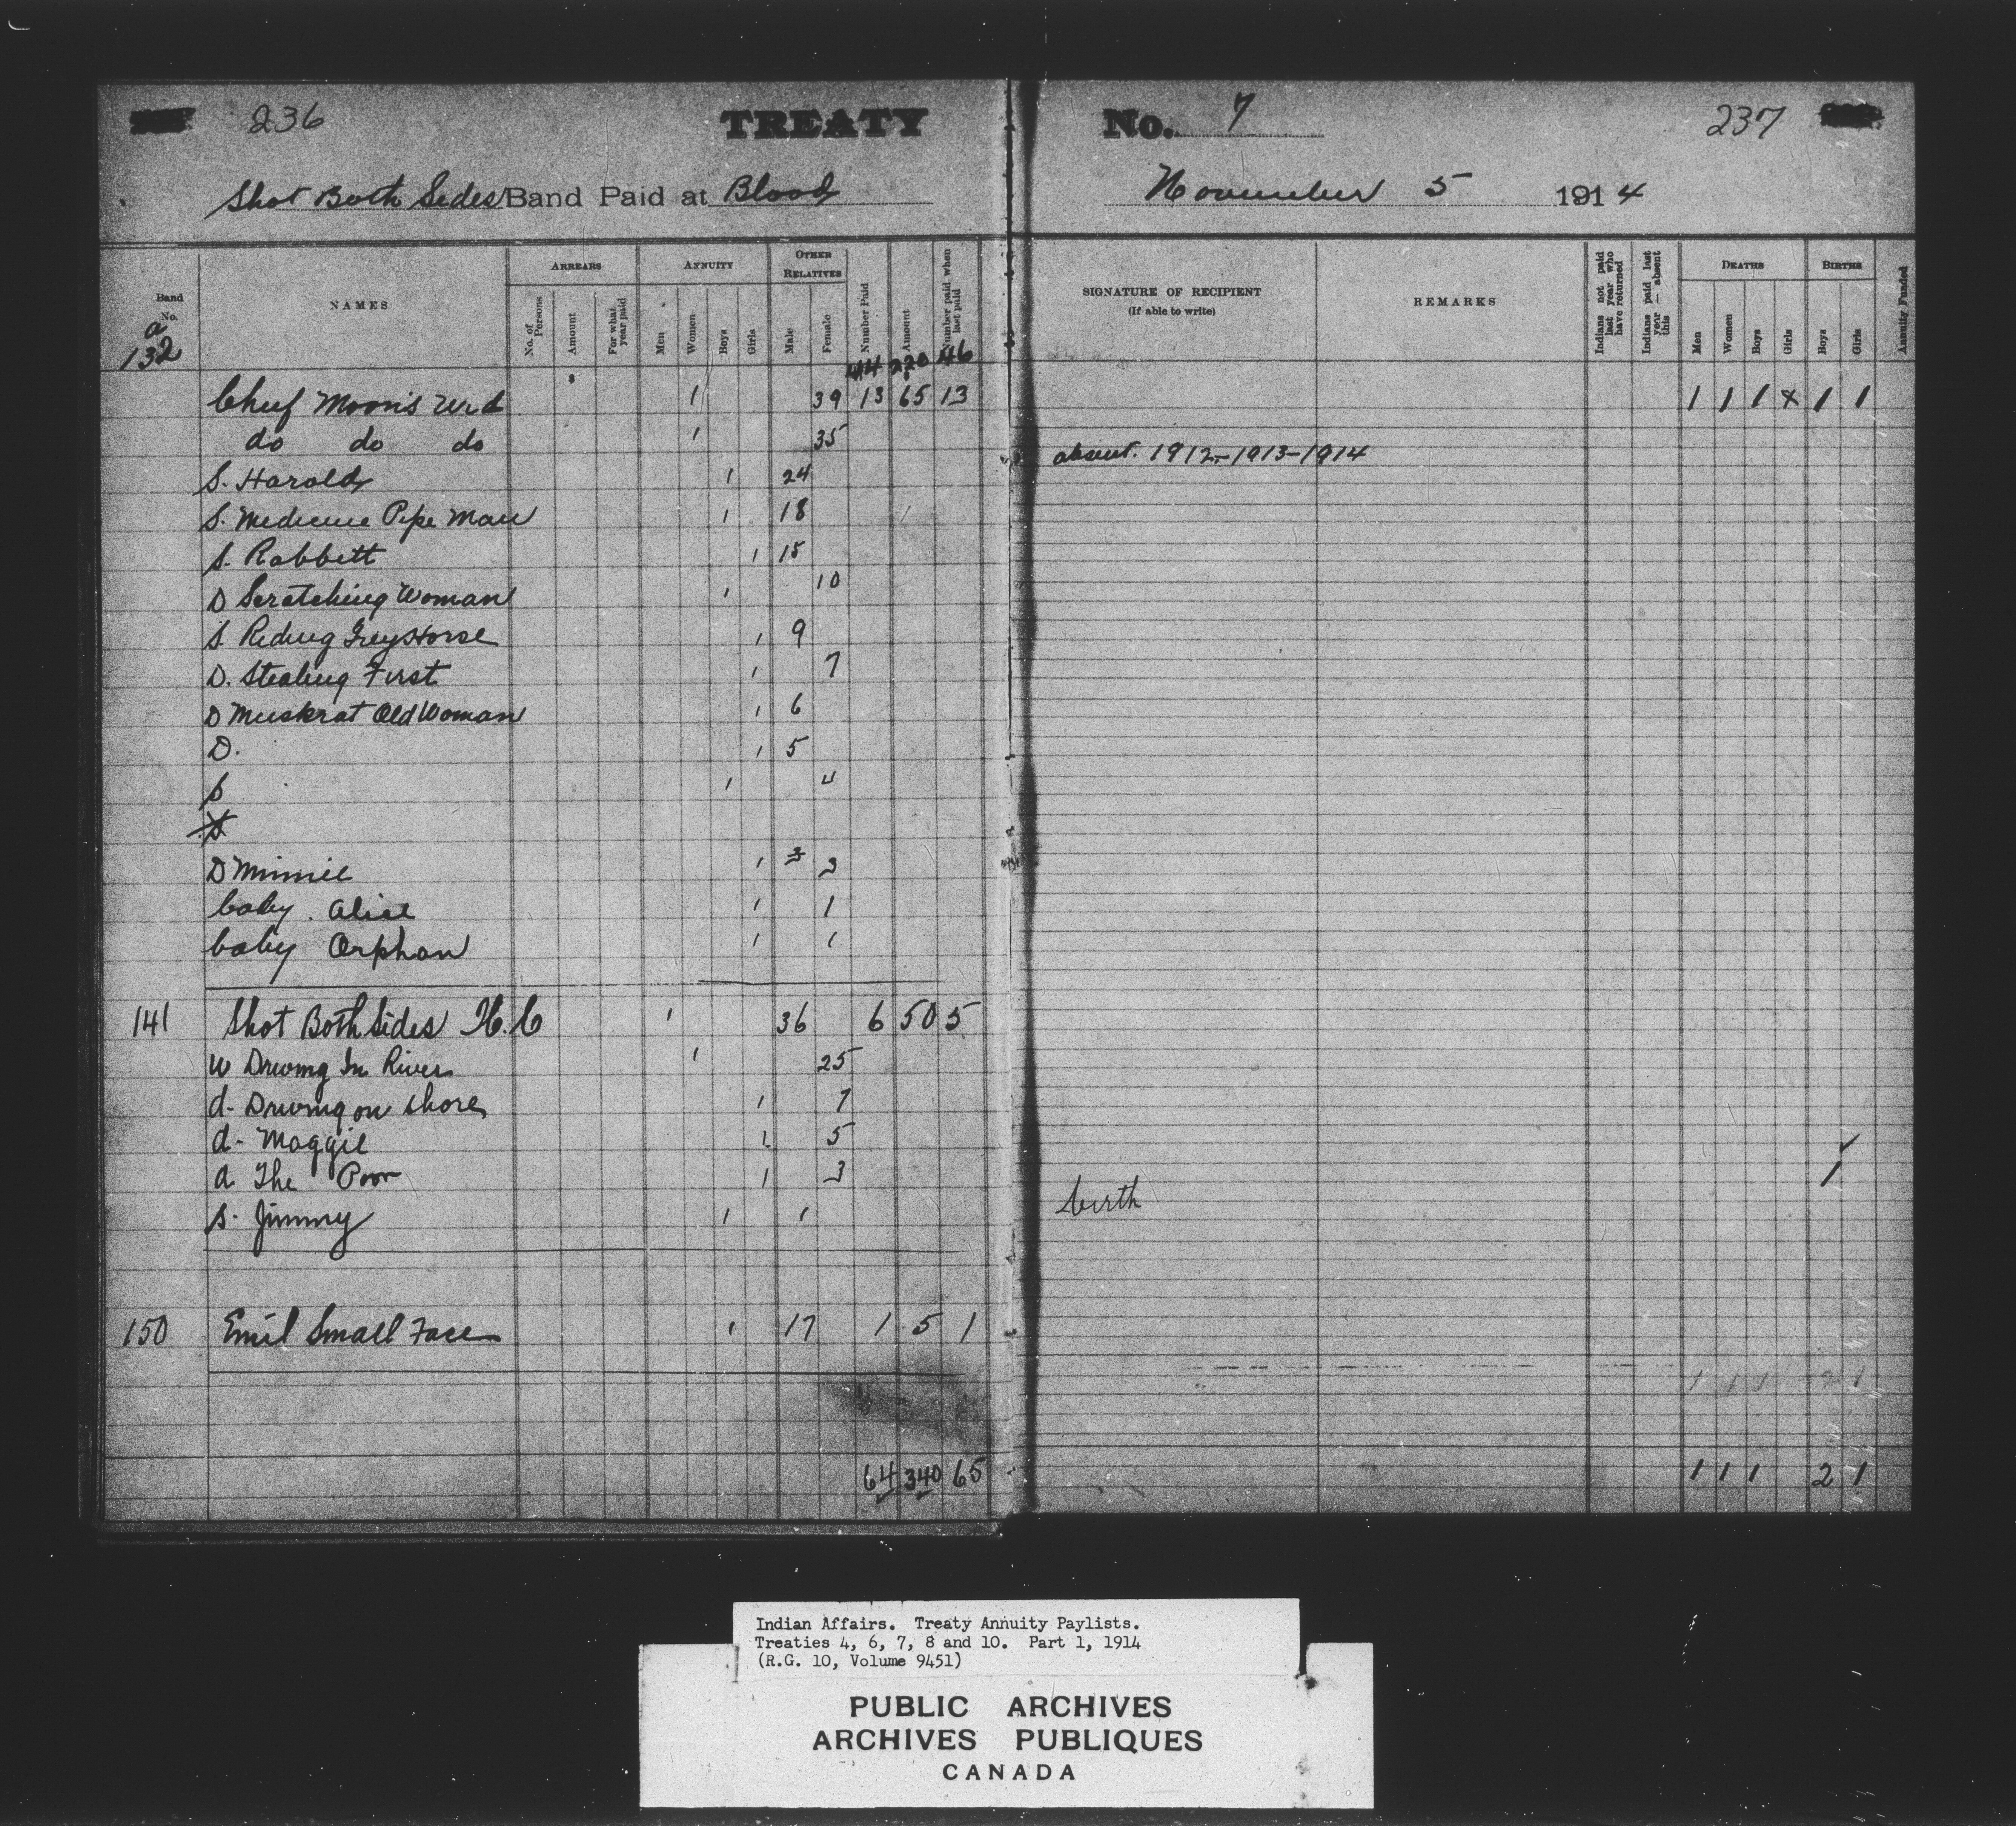 236 TREATY No. 7 237
Shot Both Sides Band Paid at Blood November 5 1914
Band No. NAMES ARREARS ANNUITY OTHER RELATIVES Number Paid Amount Number paid when last paid SIGNATURE OF RECIPIENT (If able to write) REMARKS Indians not paid last year who have returned Indians paid last year — absent this DEATHS BIRTHS Annuity Funded
No. of Persons Amount For what year paid Men Women Boys Girls Male Female Men Women Boys Girls Boys Girls
a
132 44 220 46
Chief Moon's Wid 1 39 13 65 13 1 1 1 x 1 1
do do do 1 35
absent. 1912-1913-1914
S. Harold 1 24
S. Medicine Pipe Man 1 18
S. Rabbitt 1 15
D Scratching Woman 1 10
S. Riding Grey Horse 1 9
D. Stealing First 1 7
D Muskrat Old Woman 1 6
D. 1 5
S 1 4
D Minnie 1 3 3
baby. Alice 1 1
baby Orphan 1 1
141 Shot Both Sides H.C 1 36 6 50 5
W Driving In River 1 25
d- Driving on shore 1 7
d- Maggie 1 5
d The Poor 1 3 1
S. Jimmy 1 1 birth
150 Emil Small Face 1 17 1 5 1
1 1 1 2 1
64 340 65 1 1 1 2 1
Indian Affairs. Treaty Annuity Paylists.
Treaties 4, 6, 7, 8 and 10. Part 1, 1914
(R.G. 10, Volume 9451)
PUBLIC ARCHIVES
ARCHIVES PUBLIQUES
CANADA